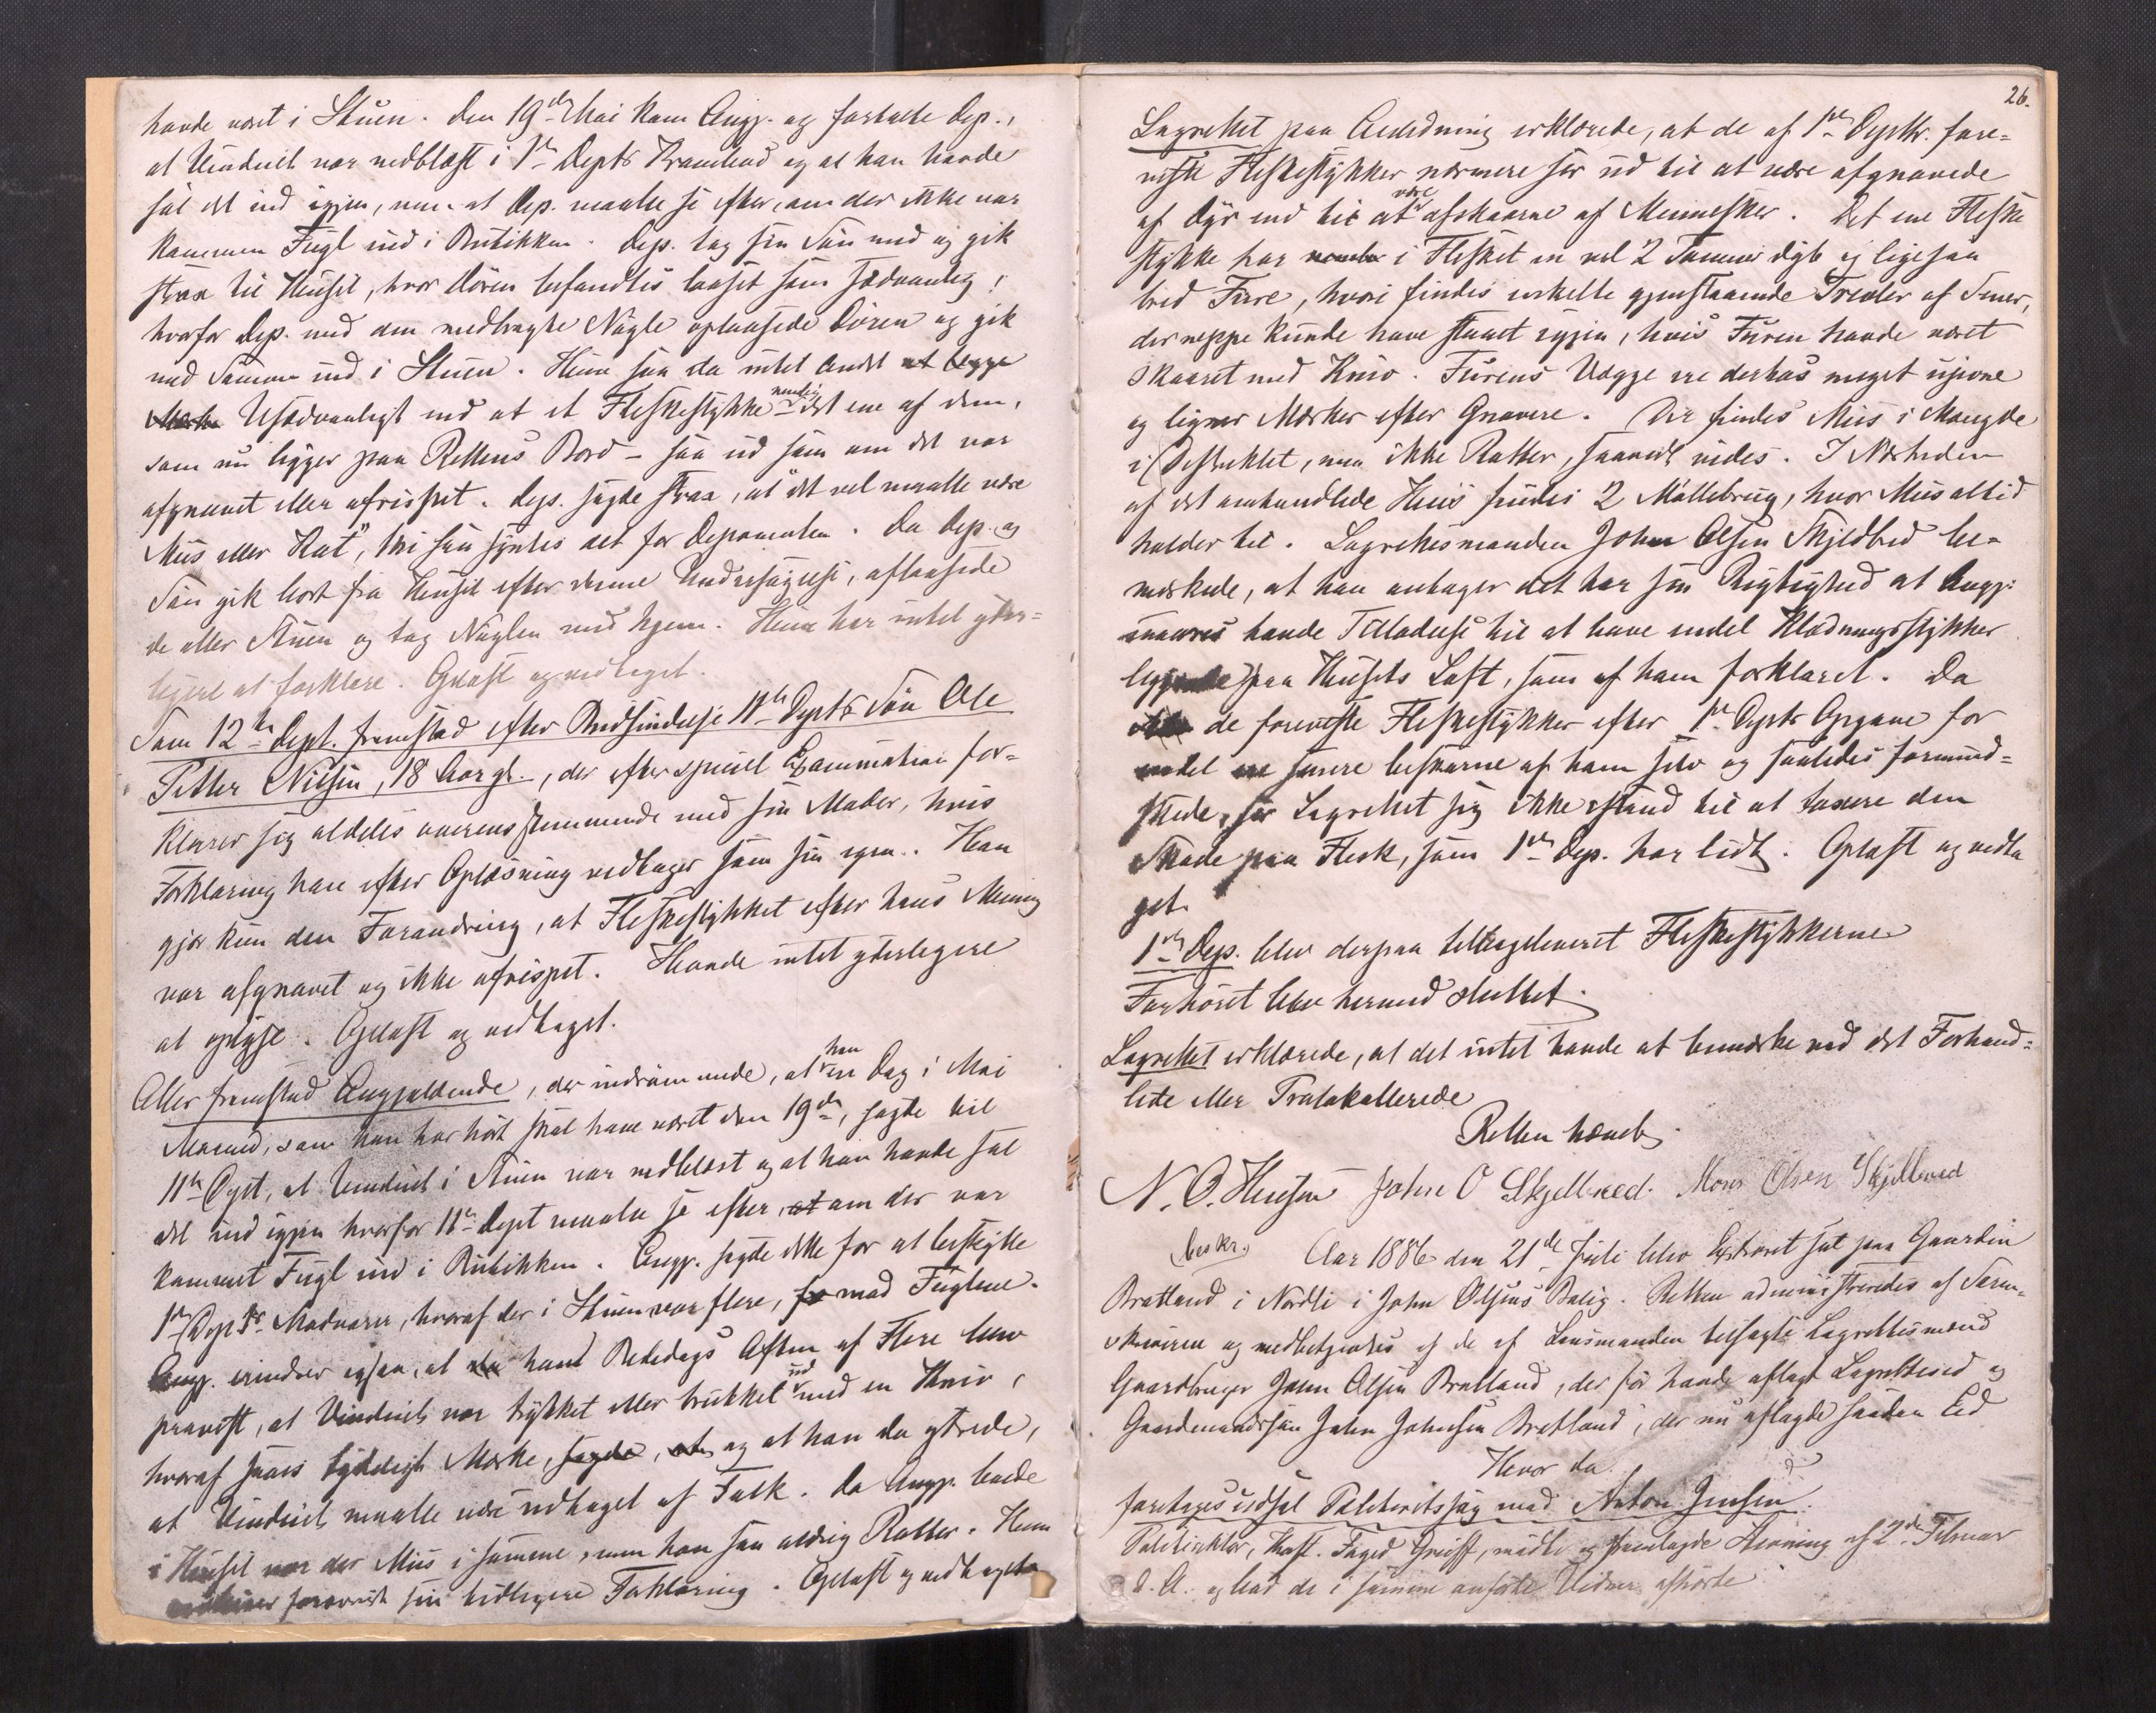 havde været i Stuen. Den 19de Mai kom Angj. og fortalte Dep.,
at Vinduet var nedblæst i 1ste Depts Krambod og at han havde
sat det ind igjen, men at Dep. maatte se efter, om der ikke var
kommen Fugl ind i Butikken. Dep. tog sin Søn med og gik
strax til Huset, hvor Døren befandtes laaset som sædvanlig,
hvorfor Dep. med den medbragte Nøgle oplaasede Døren og gik
med Sønnen ind i Stuen. Hun saa da intet Andet at lægge
Mærke Usædvanligt end at et Fleskestykke nemlig det ene af dem,
som nu ligger paa Rettens Bord – saa ud som om det var
afgnavet eller afrispet. Dep. sagde strax, at "det vel maatte være
Mus eller Rot", thi saa syntes det for Deponenten. Da Dep. og
Søn gik bort fra Huset efter denne Undersøgelse, aflaasede
de atter Stuen og tog Nøglen med hjem. Hun har intet yder=
ligere at forklare. Oplæst og vedtaget.
Som 12te Dept. fremstod efter Indfindelse 11te Depts Søn Ole
Petter Nilsen, 18 Aar gl., der efter speciel Examination for=
klarer sig aldeles overensstemmende med sin Moder, hvis
Forklaring han efter Oplæsning vedtager som sin egen. Han
gjør kun den Forandring, at Fleskestykket efter hans Mening
var afgnavet og ikke afrispet. Havde intet yderligere
at oplyse. Oplæst og vedtaget.
Atter fremstod Angjældende, der indrømmede, at han en Dag i Mai
Maaned, som han har hørt skal have været den 19de, sagde til
11te Dept, at Vinduet i Stuen var nedblæst og at han havde sat
det ind igjen hvorfor 11te Dept maatte se efter, at om der var
kommet Fugl ind i Butikken. Angj. sagde dette for at beskytte
1ste Depts Madvarer, hvoraf der i Stuen var flere, fo mod Fuglene.
Angj. erindrer ogsaa, at da hant Bededags Aften af Flere blev
paavist, at Vinduet var trykket eller brukket ud med en Kniv,
hvoraf saaes tydeligt Mærke, sagde, at og at han da ytrede,
at Vinduet maatte være udtaget af Folk. Da Angj. boede
i Huset var der Mus i samme, men han saa aldrig Rotter. Hun
forøvrigt sin tidligere Forklaring. Oplæst og vedtaget
26.
Lagrettet paa Anledning erklærede, at de af 1ste Deptr. fore=
viste Fleskestykker nærmere ser ud til at være afgnavede
af Dyr end til at være afskaarne af Mennesker. Det ene Fleske
stykke har i Flesket en vel 2 Tommer dyb og ligesaa
bred Fure, hvori findes enkelte gjenstaaende Trevler af Sener,
der neppe kunde have staaet igjen, hvis Furen havde været
skaaret med Kniv. Furens Vægge ere derhos meget ujevne
og ligner Mærker efter Gnavere. Der findes Mus i Mængde
i Distriktet, men ikke Rotter, saavidt vides. I Nærheden
af det omhandlede Huus findes 2 Møllebrug, hvor Mus altid
holder til. Lagrettesmanden John Olsen Skjelbred be=
mærkede, at han antager det har sin Rigtighed at Angj.
havde Tilladelse til at have endel Klædningsstykker
liggende paa Husets Loft, som af ham forklaret. Da
de foreviste Fleskestykker efter 1ste Depts Opgave for
endel ere senere beskaarne af ham selv og saaledes formind=
skede, ser Lagrettet sig ikke istand til at taxere den
Skade paa Flesk, som 1ste Dep. har lidt. Oplæst og vedta
get.
1ste Dep. blev derpaa tilbageleveret Fleskestykkerne
Forhøret blev hermed sluttet.
Lagrettet erklærede, at det intet havde at bemærke ved det Forhand=
lede eller Protokollerede
Retten hævet.
N. O. Hansen John O Skjelbred. Mons Olsen Skjelbred
(beskr.) Aar 1886 den 21de Juli blev Extraret sat paa Gaarden
Bratland i Nordli i John Olsens Bolig. Retten administreredes af Soren=
skriveren og medbetjentes af de af Lensmanden tilsagte Lagrettesmænd
Gaardbruger John Olsen Bratland, der før havde aflagt Lagretteed og
Gaardmandssøn John Johnsen Bratland, der nu aflagde saadan Ed
Hvor da
foretages udsat Politiretssag mod Anton Jensen.
Politiinktor, Konst. Foged Greiff, mødte og fremlagde Stevning af 2de Februar
d. A. og bad de i samme anførte Vidner afhørte